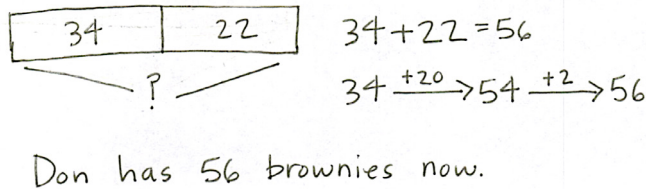 34 22
?
34+22=56
34 +20 → 54 +2 → 56
Don has 56 brownies now.